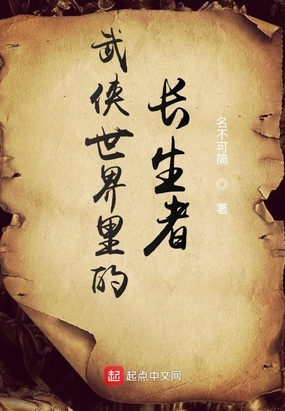 武侠世界里的
长生者
名不可简 ◎ 著
起 起点中文网